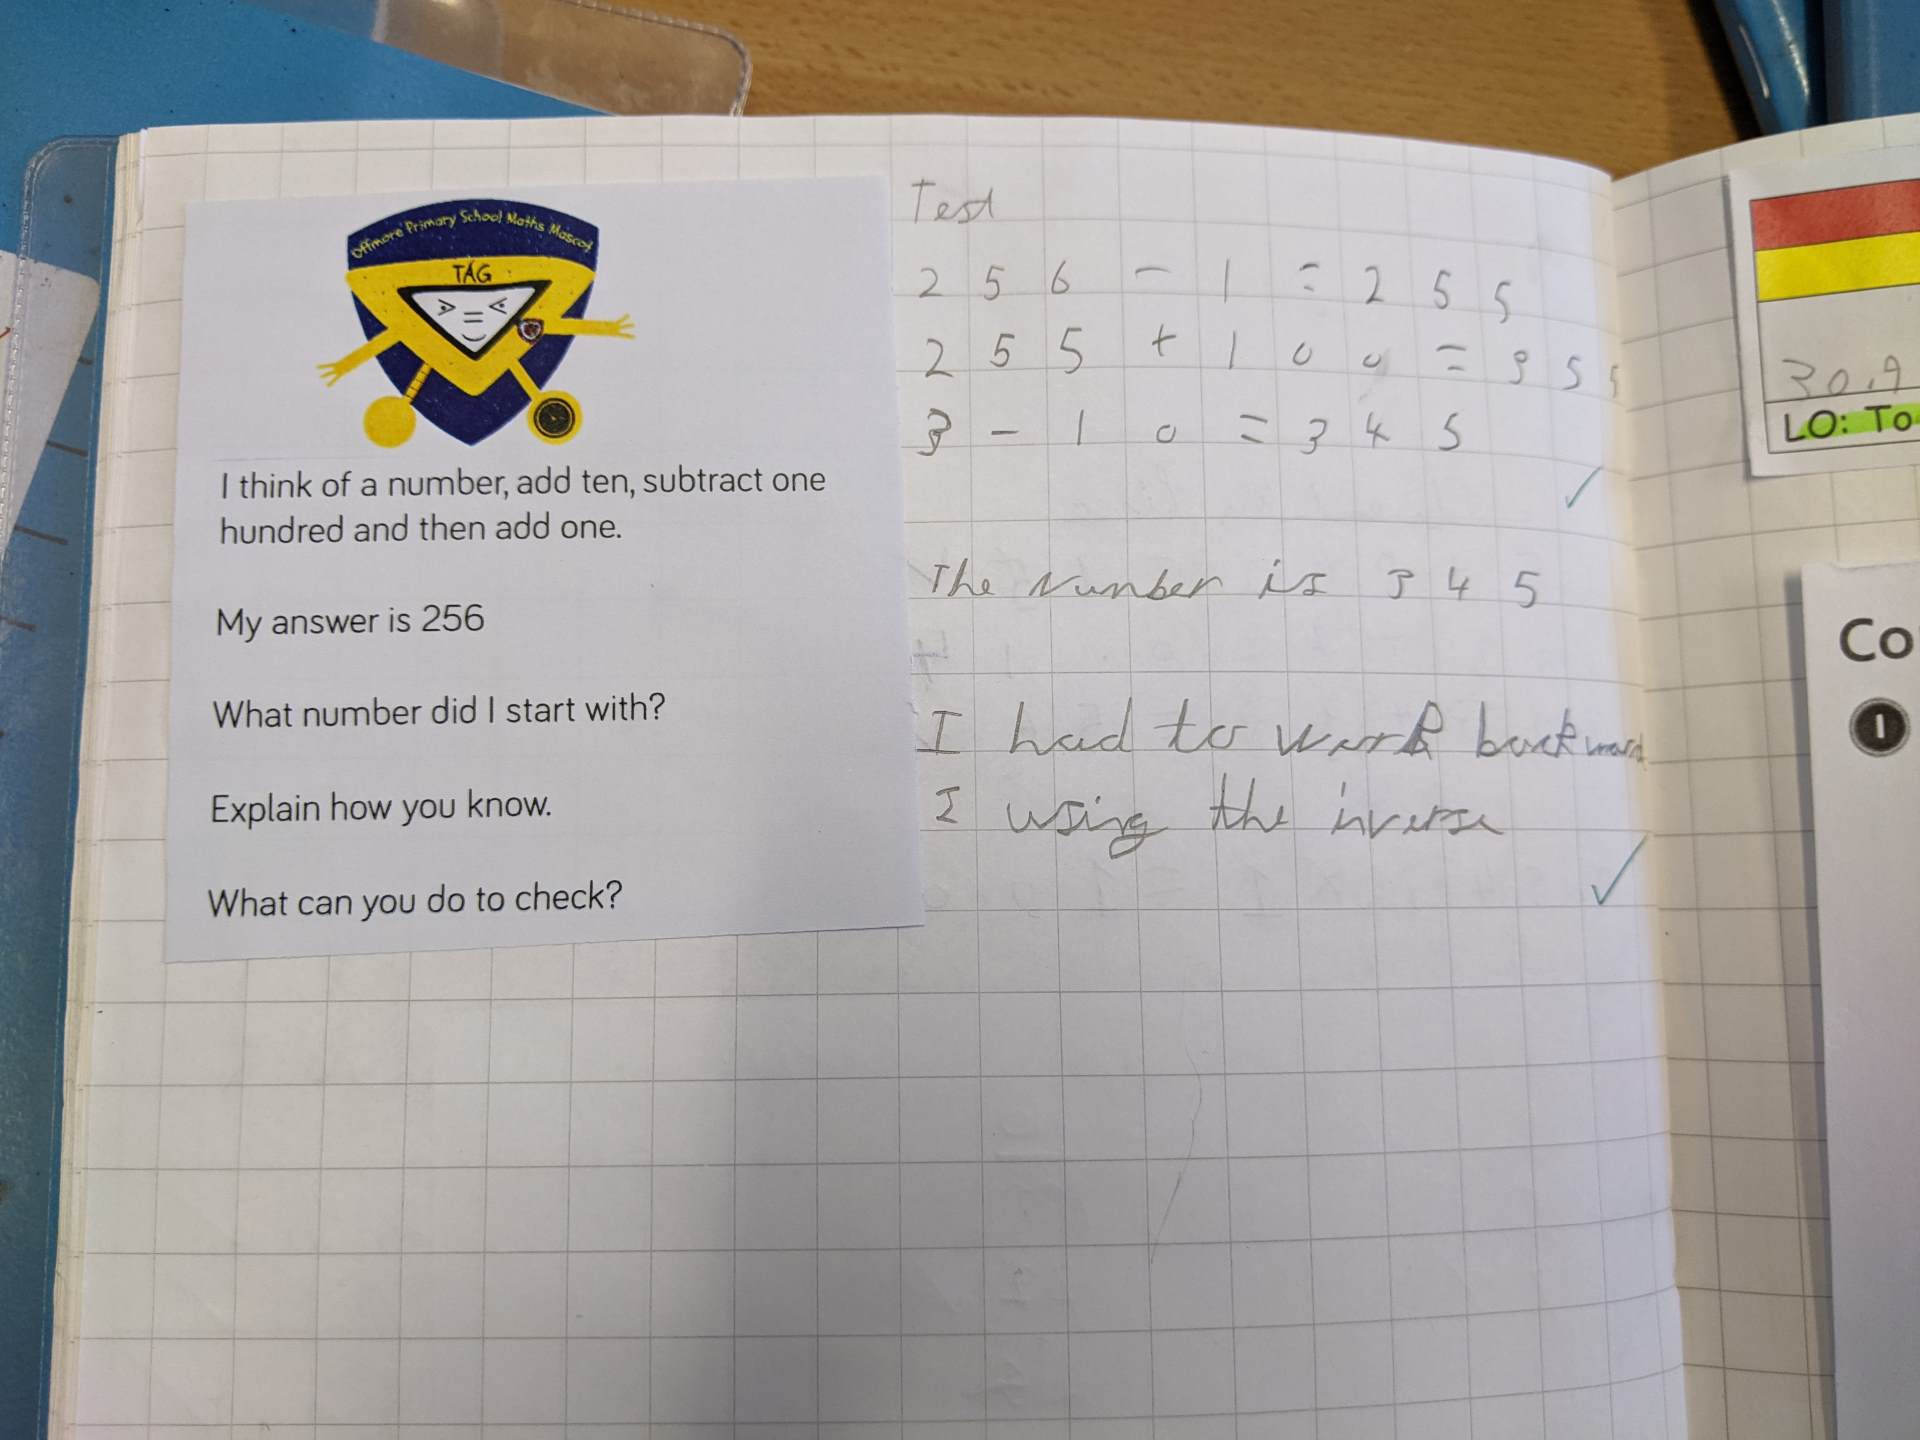 Offmore Primary School Maths Mascot
TAG
I think of a number, add ten, subtract one
hundred and then add one.
My answer is 256
What number did I start with?
Explain how you know.
What can you do to check?
Test
256 - 1 = 255
255 + 100 = 355
3 - 10 = 345
The Number is 345
I had to work backward
I using the inverse
30.9
LO: To
Co
1